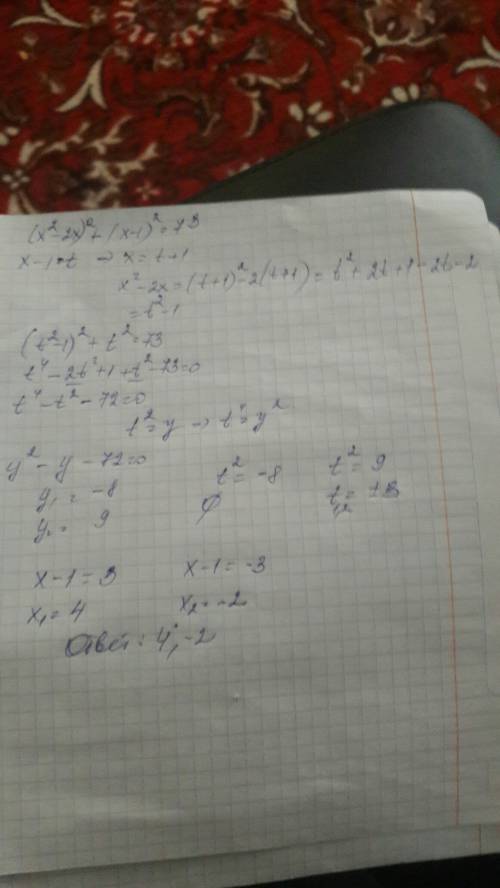 (x²-2x)²+(x-1)²=73
x-1=t → x=t+1
x²-2x=(t+1)²-2(t+1)=t²+2t+1-2t-2
=t²-1
(t²-1)²+t²=73
t⁴-2t²+1+t²-73=0
t⁴-t²-72=0
t²=y → t⁴=y²
y²-y-72=0
y₁=-8
y₂=9
t²=-8
∅
t²=9
t₁,₂=±3
x-1=3
x₁=4
x-1=-3
x₂=-2
Ответ: 4; -2